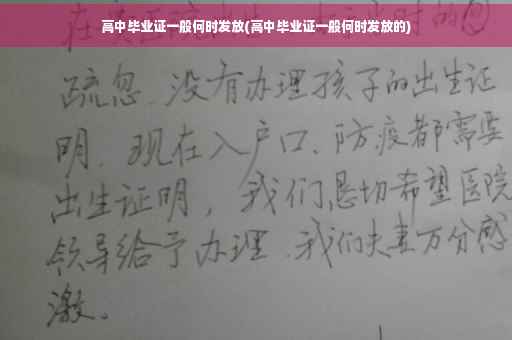 高中毕业证一般何时发放(高中毕业证一般何时发放的)
疏忽、没有办理孩子的出生证
明、现在入户口、防疫都需要
出生证明，我们恳切希望医院
领导给予办理、我们夫妻万分感
激。